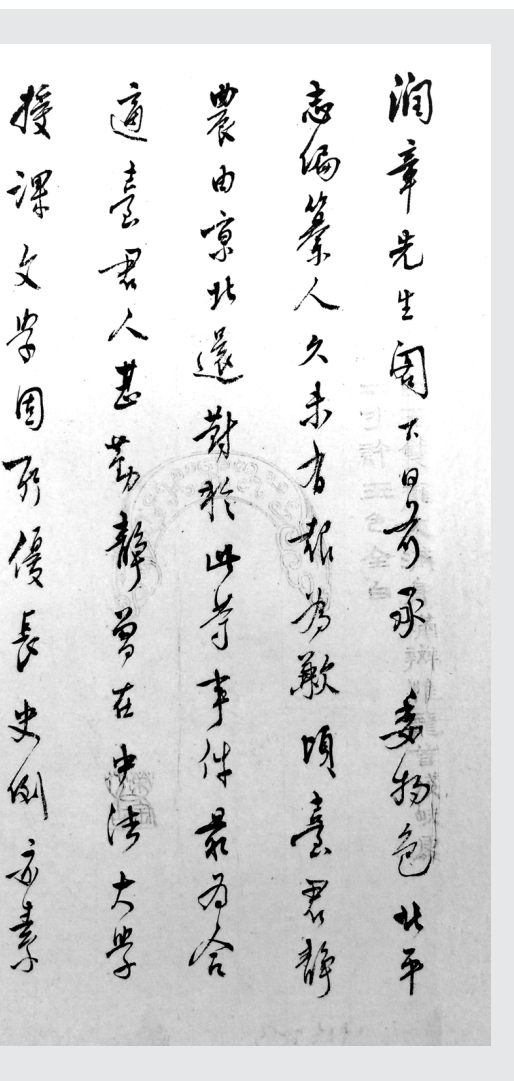 潤章先生閣下日前承 委物色北平
志編纂人久未有報為歉頃臺君靜
農由京北還對於此等事件最為合
適臺君人甚勤靜曾在中法大學
授課文學固所優長史例亦素